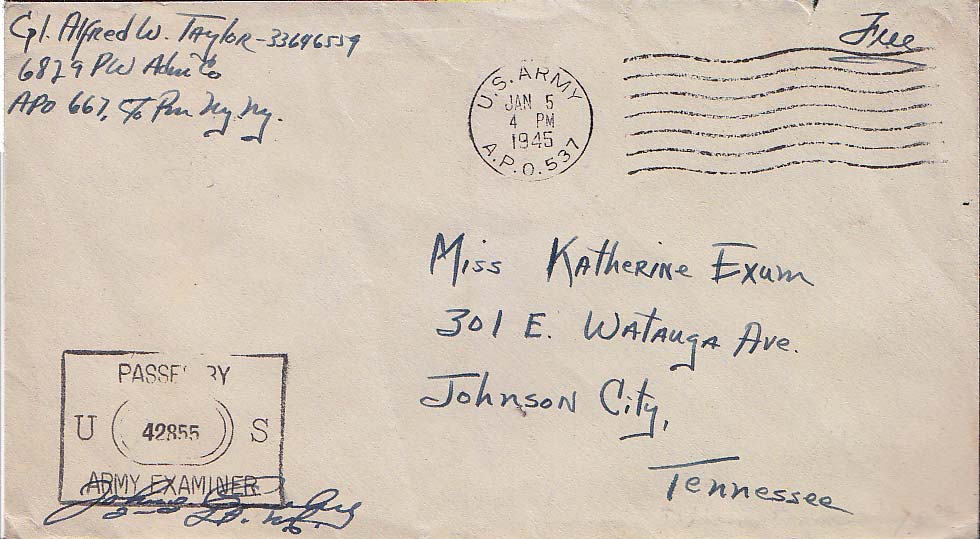 Cpl. Alfred W. Taylor - 33696559
6829 PW Adm Co
APO 667, c/o Pm Ny. Ny.
Free
U.S. ARMY
JAN 5
4 PM
1945
A.P.O. 537
Miss Katherine Exum
301 E. Watauga Ave.
Johnson City,
Tennessee
PASSE BY
U 42855 S
ARMY EXAMINER